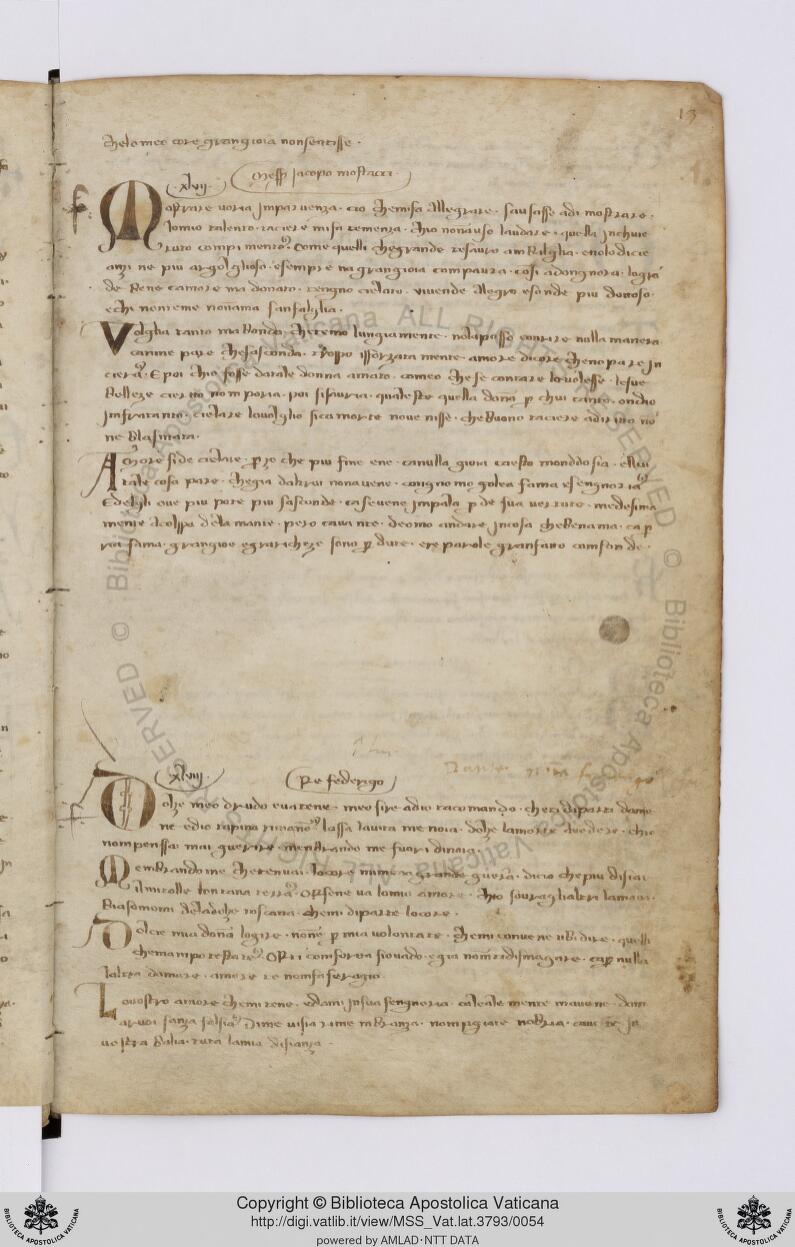 13
chelomeo core grangioia nonsentisse ·
xlvij · Messer jacopo mostacci ·
Mostrare voria jmparvenza · cio chemisa allegrare · savsasse adi mostrare ·
lomio talento · taciere misa temenza · chio nonauso laudare · quella jnchuie
tuto compimento · Come quelli chegrande tesauro
anzi ne piu argolglioso · esempre na grangioia compaura · cosi adongnora · logra
de bene camore ma donato · tengno cielato · vivende alegro esonde piu dottoso ·
echi nonteme nonama sanfalglia ·
Volglia tanto mabonda · chetemo lungiamente · nolaposso covrire nulla manera
canme pare chesasconda · troppo isforzata mente · amore dicore chenopare jn
ciera · E poi chio fosse datale donna amato · comeo chese contare lovolesse · lesue
belleze cierto nomporia · poi sisauria · qualeste quella dona per chui canto · ondio
jmfratanto · cielare lovolglio sicamorte nove nisse · chebuono taciere adirito no
ne blasmata ·
Amore side cielare · perzo che piu fine ene · canulla gioia caesto monddosia · ellui
tale cosa pare · chegia daltrui nonavene · congnomo golea fama esengnoria
Edelgli ove piu pote piu sasconde · casevene jmpala per de sua vertute · medesima
mente acolppa dela mante · pero
fama · grangioe egraricheze sono per dute · ep parole granfatto comfonde ·
xlviij · Re federigo
Dolze meo drudo evatene · meo sire adio tacomando · cheti diparti dame
ne edio tapina rimano · lassa lavita me noia · dolze lamorte avedere · chio
nompenssai mai guerire · membrando me fuori dinoia ·
Membrandome chetenvai · locore mimena grande guera · dicio chepiu disiai
ilmitolle lontana terra · Orsene va lomio amore · chio sovraglialtri lamava
biasomomi deladolze toscana · chemi diparte locore ·
Dolcie mia dona logire · none per mia volontate · chemi convene ubidire · quelli
chemanipotestate · Orti comforta siovado · egia nomtidismagare · caper nulla
laltra damare · amore te nomfaseragio
Lo vostro amore chemi tene · edami jnsua sengnoria · caleale mente mavene · damar
arvoi sanza falsia · Dime visia rimembranza · nompigiate nobria · cavete jn
vostra balia · tuta lamia disianza ·
Copyright © Biblioteca Apostolica Vaticana
http://digi.vatlib.it/view/MSS_Vat.lat.3793/0054
powered by AMLAD·NTT DATA